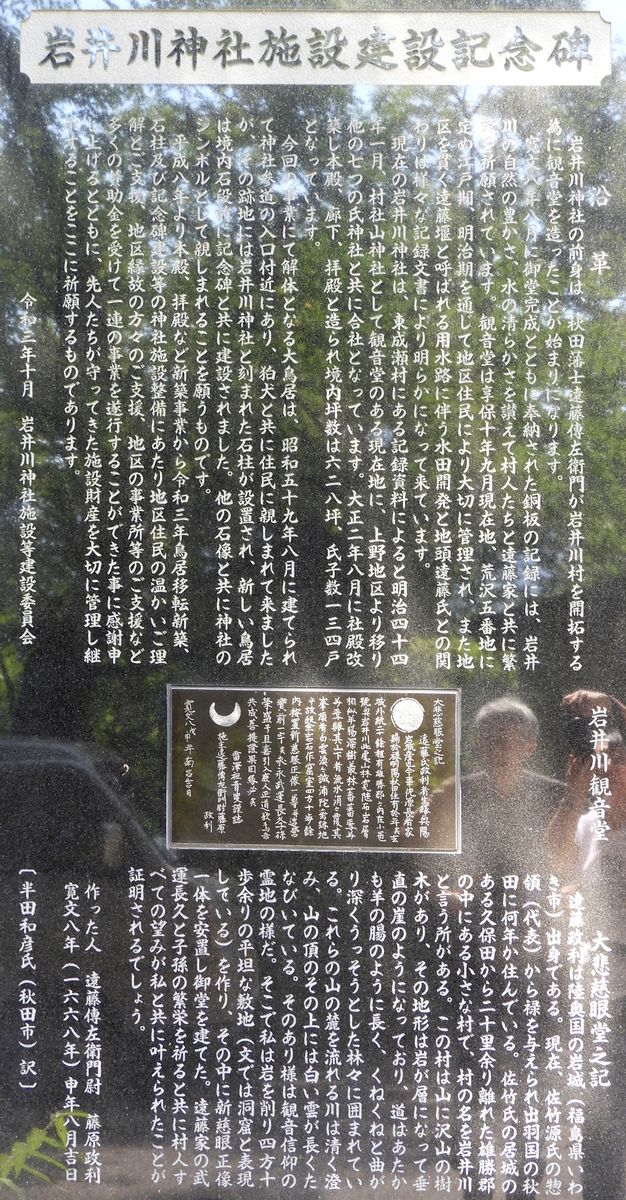 岩井川神社施設建設記念碑
沿革
岩井川神社の前身は、秋田藩士遠藤傳左衛門が岩井川村を開拓する
為に観音堂を造ったことが始まりになります。
寛文八年八月に御堂完成とともに奉納された銅板の記録には、岩井
川の自然の豊かさ、水の清らかさを讃えて村人たちと遠藤家と共に繁
栄を祈願されています。観音堂は享保十年九月現在地、荒沢五番地に
定め江戸期、明治期を通して地区住民により大切に管理され、また地
区を貫く遠藤堰と呼ばれる用水路に伴う水田開発と地頭遠藤氏との関
わりは様々な記録文書により明らかになって来ています。
現在の岩井川神社は、東成瀬村にある記録資料によると明治四十四
年一月、村社山神社として観音堂のある現在地に、上野地区より移り
他の七つの氏神社と共に合社となっています。大正二年八月に社殿改
築し本殿、廊下、拝殿と造られ境内坪数は六二八坪、氏子数一三四戸
となっています。
今回の事業にて解体となる大鳥居は、昭和五十九年八月に建てられ
て神社参道の入口付近にあり、狛犬と共に住民に親しまれて来ました
が、その跡地には岩井川神社と刻まれた石柱が設置され、新しい鳥居
は境内石段前に記念碑と共に建設されました。他の石像と共に神社の
シンボルとして親しまれることを願うものです。
平成八年より本殿、拝殿など新築事業から令和三年鳥居移転新築、
石柱及び記念碑建設等の神社施設整備にあたり地区住民の温かいご理
解とご支援、地区縁故の方々のご支援、地区の事業所等のご支援など
多くの賛助金を受けて一連の事業を遂行することができた事に感謝申
し上げるとともに、先人たちが守ってきた施設財産を大切に管理し継
することをここに祈願するものであります。
令和三年十月　岩井川神社施設等建設委員会
岩井川観音堂
大悲慈眼堂之記
大悲慈眼堂之記
遠藤政利は陸奥国の岩城（福島県いわ
き市）出身である。現在　佐竹源氏の惣
領（代表）から禄を与えられ出羽国の秋
田に何年か住んでいる。佐竹氏の居城の
ある久保田から二十里余り離れた雄勝郡
の中にある小さな村で、村の名を岩井川
と言う所がある。この村は山に沢山の樹
木があり、その地形は岩が層になって垂
直の崖のようになっており、道はあたか
も羊の腸のように長く、くねくねと曲が
り深くうっそうとした林々に囲まれてい
る。これらの山の麓を流れる川は清く澄
み、山の頂のその上には白い雲が長くた
なびいている。そのあり様は観音信仰の
霊地の様だ。そこで私は岩を削り四方十
歩余りの平坦な敷地（文では洞窟と表現
している）を作り、その中に新慈眼正像
一体を安置し御堂を建てた。遠藤家の武
運長久と子孫の繁栄を祈ると共に村人す
べての望みが私と共に叶えられたことが
証明されるでしょう。
作った人　遠藤傳左衛門尉　藤原政利
寛文八年（一六六八年）申年八月吉日
〔半田和彦氏（秋田市）訳〕